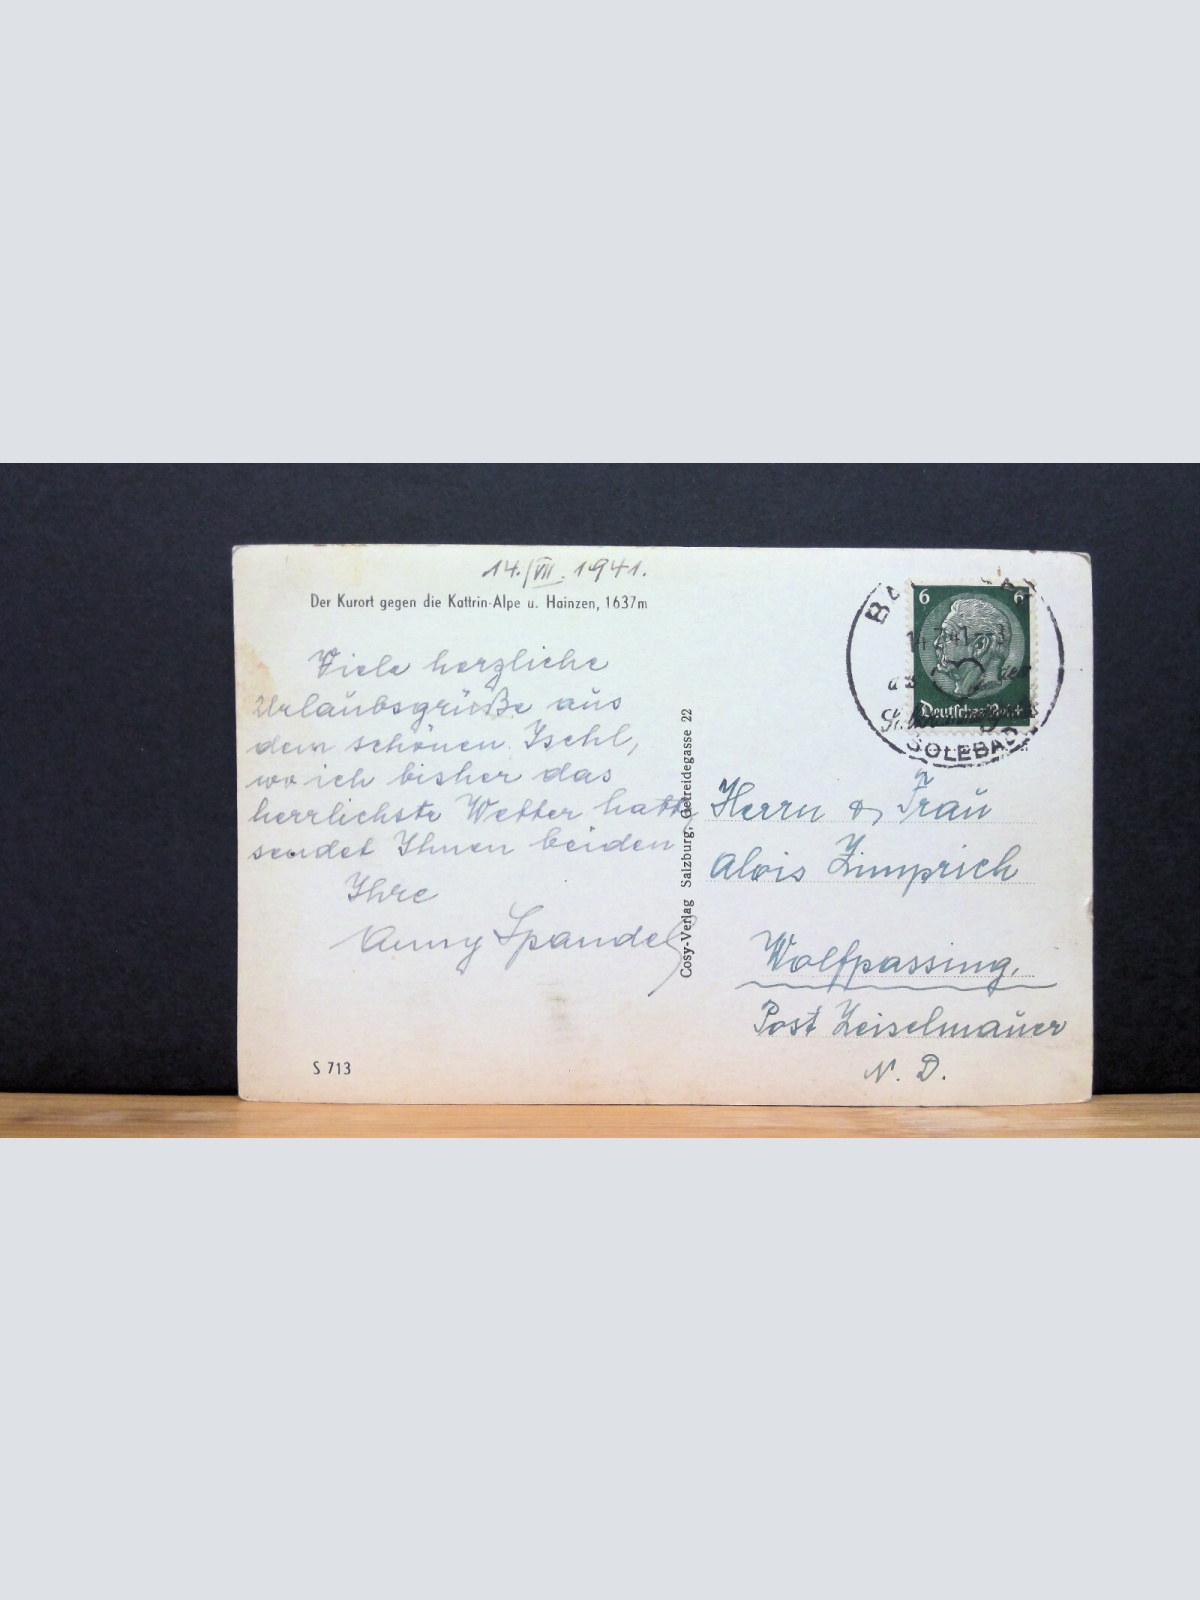 14./VII. 1941.
Der Kurort gegen die Kattrin-Alpe u. Hainzen, 1637m
Viele herzliche
Urlaubsgrüße aus
dem schönen Ischl,
wo ich bisher das
herrlichste Wetter hatte,
sendet Ihnen beiden
Ihre
Anny Spandel
S 713
Cosy-Verlag Salzburg, Getreidegasse 22
6 6
Deutsches Reich
14.7.41
SOLEBAD
Herrn & Frau
Alois Zimprich
Wolfpassing.
Post Zeiselmauer
N. D.